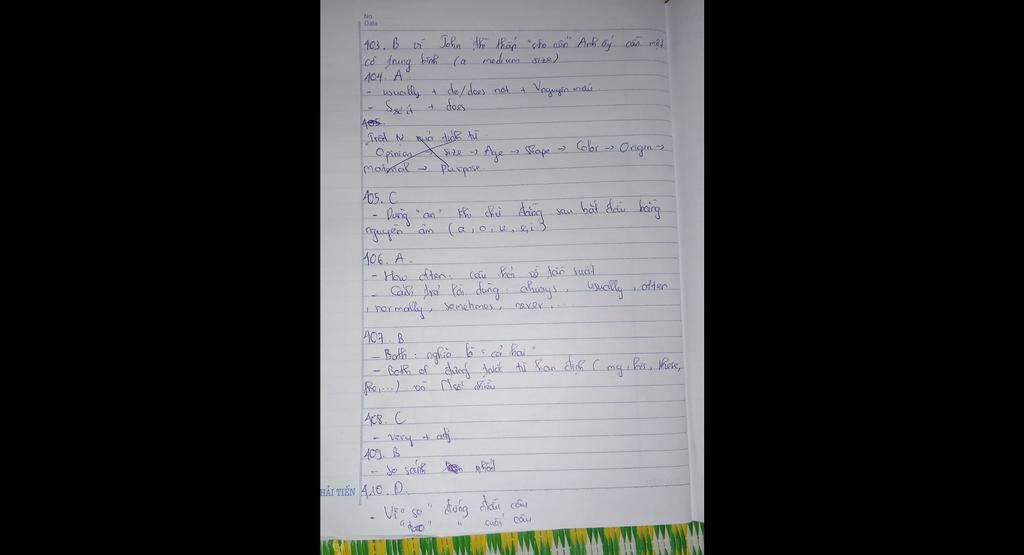 No.
Date
403. B vì John thì thấp "cho nên" Anh ấy cần một
cỡ trung bình (a medium size)
404. A
- usually + do/does not + Vnguyên mẫu
- Ssố ít + does
405.
Trật tự tính từ
Opinion → size → Age → Shape → Color → Origin →
material → Purpose
405. C
- Dùng "an" khi chữ đằng sau bắt đầu bằng
nguyên âm (a, o, u, e, i)
406. A.
- How often: câu hỏi về tần suất
- Cách trả lời dùng: always, usually, often
, normally, sometimes, never, ...
407. B
- Both: nghĩa là "cả hai"
- Both of đứng trước từ hạn định (my, his, these,
the, ...) và N số nhiều
408. C
- very + adj
409. B
- so sánh nhất
HẢI TIẾN
410. D.
- Vì "so" đứng đầu câu
" " cuối câu